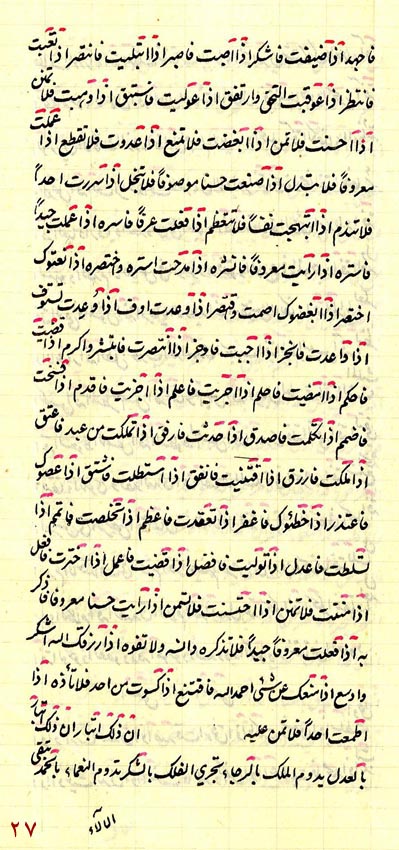 فاجهد اذا ضيفت فاشكر اذا اصبت فاصبر اذا ابتليت فانتصر اذا تعبت
فانتظر اذا عوقبت التحى وارتفق اذا عوليت فاستبق اذا وهبت فلا تمن
اذا احسنت فلا تمن اذا ابغضت فلا تمنع اذا عدوت فلا تقطع اذا عملت
معروفاً فلا تبتدل اذا صنعت حسنا موصوفاً فلا تبخل اذا سررت احداً
فلا تندم اذا ابتهجت نفساً فلا تتعظم اذا فعلت عرفاً فاسره اذا عملت جيداً
فاستره اذا رايت معروفاً فانشره اذا مدحت استره وختصره اذا نعتوك
اختصر اذا بغضوك اصمت وقتصر اذا وعدت اوف اذا وعدت تستوف
اذا واعدت فانجز اذا اجبت فاوجز اذا انتصرت فابشر واكرم اذا قضيت
فاحكم اذا امضيت فاحلم اذا اجريت فاعلم اذا اجزيت فاقدم اذا
فاضم اذا تكلمت فاصدق اذا حدثت فارفق اذا تملكت من عبد فاعتق
اذا املكت فارزق اذا اقتنيت فانفق اذا استطلت فاشتق اذا عصوك
فاعتذر اذا خطئوك فاغفر اذا تعقدت فاعظم اذا تخلصت فانعم اذا
تسلطت فاعدل اذا توليت فافضل اذا قضيت فاعمل اذا اخترت فافعل
اذا منعت فلا تمنن اذا احتسنت فلا تسمن اذا رايت حسنا معروفا فاذكر
به اذا فعلت معروفاً جيداً فلا تذكره وانسه ولا تفوه اذا رزقك الله اشكر
وادسع اذا منعك عن شئ احمد الله فاقتنع اذا كسوت من احد فلا تأذه اذا
اطعمت احداً فلا تمن عليه ان ذلك
بالعدل يدوم الملك بالرجاء يتجري الفلك بالشكر تدوم النعماء بالحمد تبقى
الالاء
٢٧